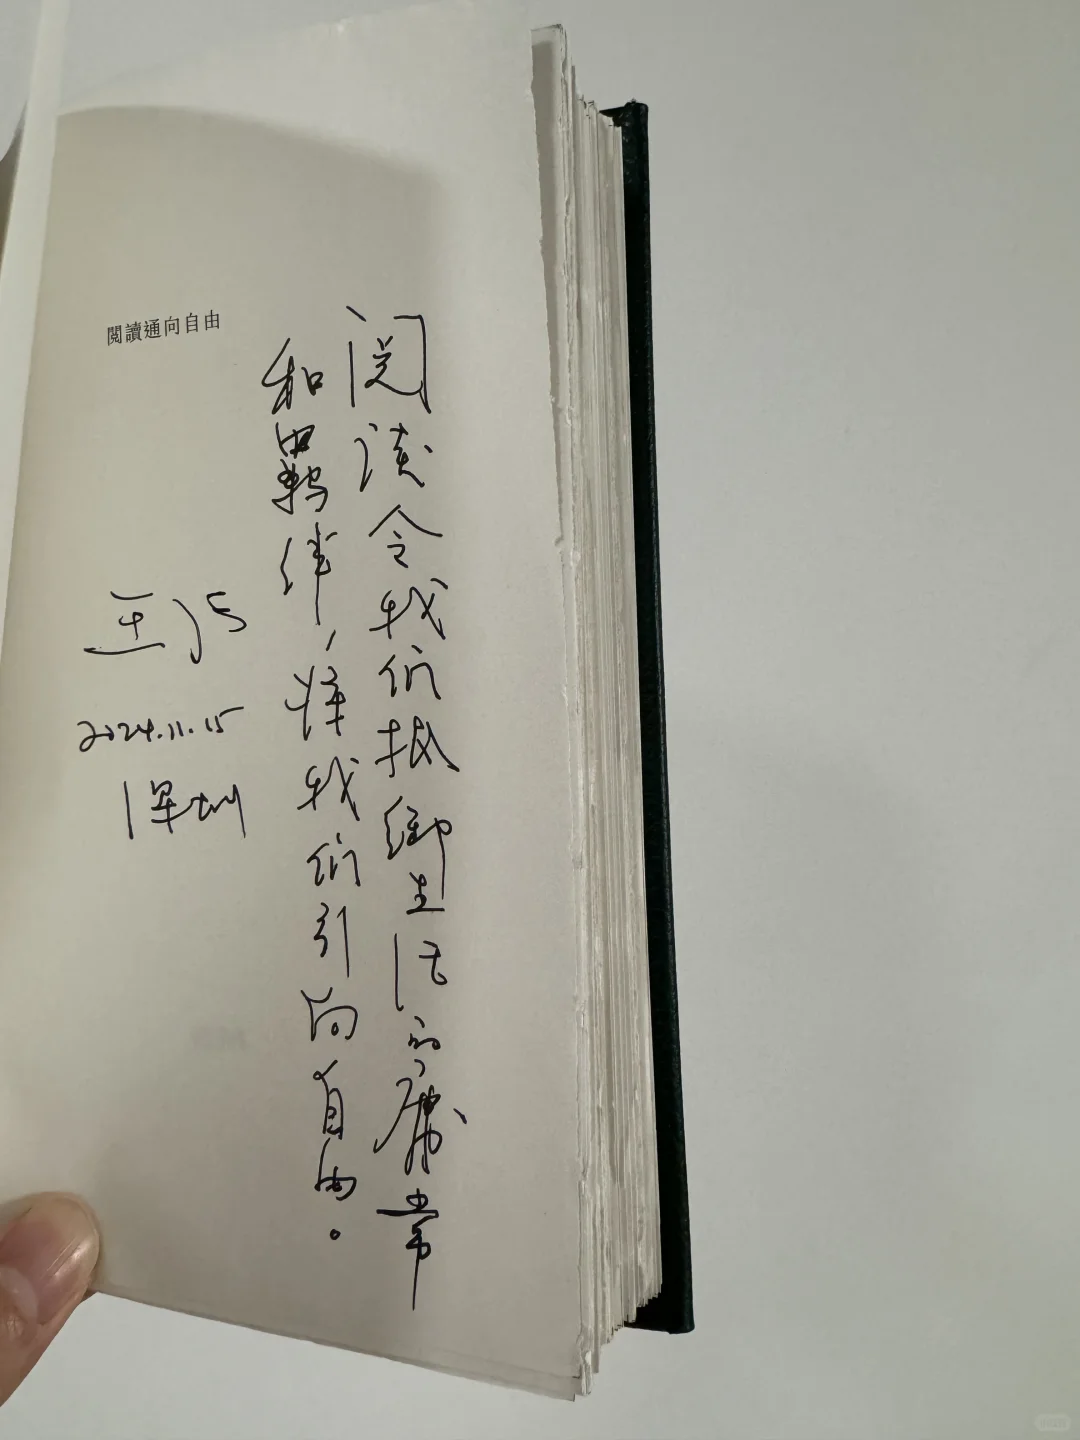 阅读令我们抵御生活的庸常
和羁绊，将我们引向自由。
閱讀通向自由
王强
2024.11.15
深圳